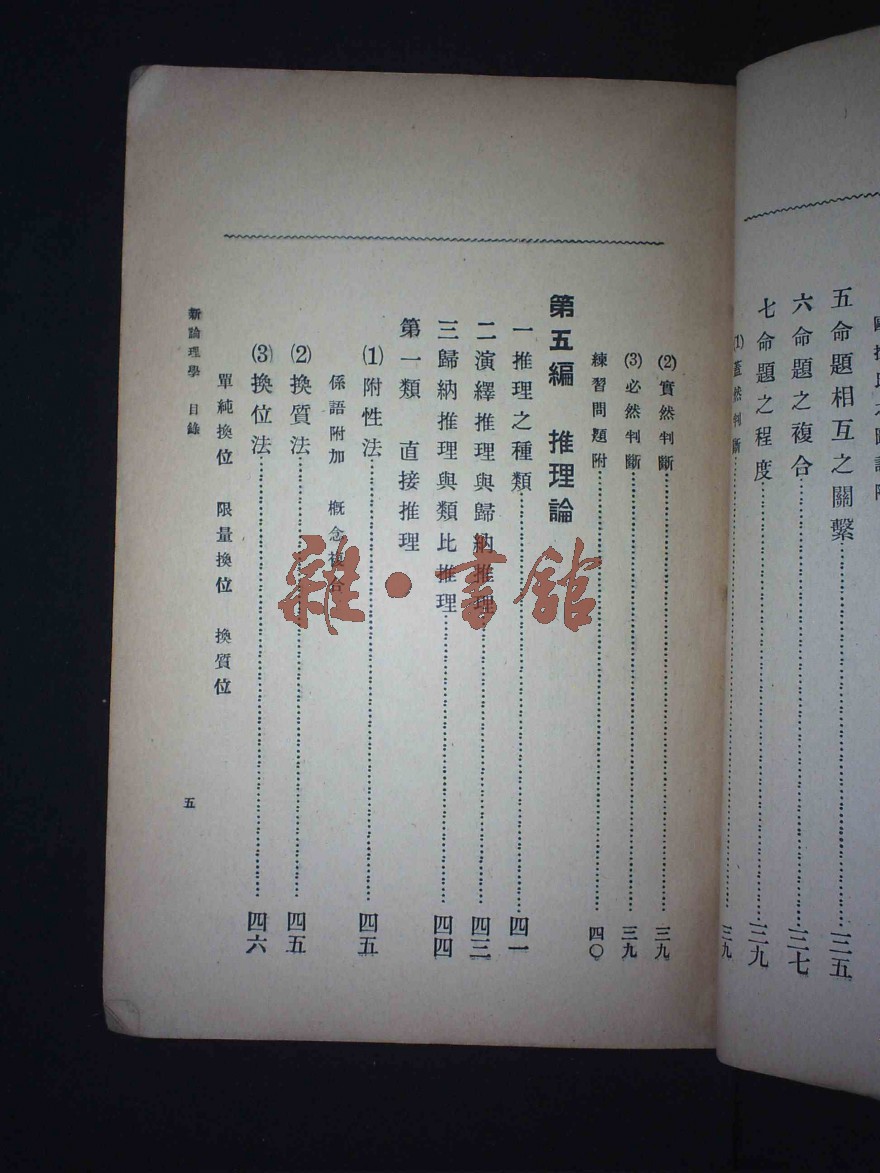 五命題相互之關繫……三五
六命題之複合……三七
七命題之程度……三九
(1)蓋然判斷……三九
(2)實然判斷……三九
(3)必然判斷……三九
練習問題附……四〇
第五編 推理論
一推理之種類……四一
二演繹推理與歸納推理……四三
三歸納推理與類比推理……四四
第一類 直接推理
(1)附性法……四五
係語附加 概念複合
(2)換質法……四五
(3)換位法……四六
單純換位 限量換位 換質位
新論理學 目錄
五
雜·書館